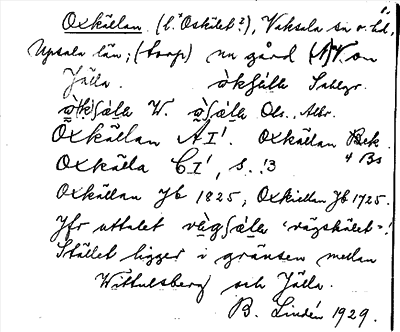 Oxkällan. (l. "Oskälet"?), Vaksala sn o. hd,
Upsala län; (torp) nu gård NV om
Jälla. òkſälla Sahlgr.
W. Ols. Albr.
Oxkällan A I'. Oxkällan Bek.
Oxkälla C I', s. 13 " Bs
Oxkällan Jb 1825, Oxkiällan Jb 1725.
Jfr uttalet vä̀gſäla "vägskälet"!
Stället ligger i gränsen mellan
Wittulsberg och Jälla.
B. Lindén 1929.